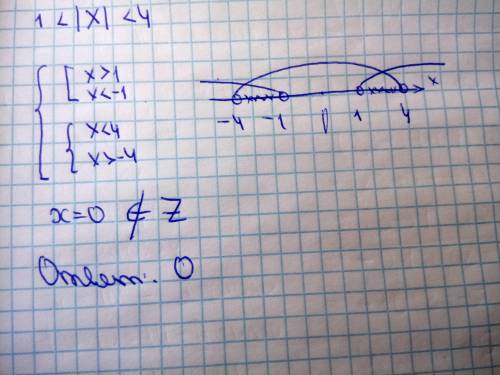 1 < |x| < 4
x > 1
x < -1
x < 4
x > -4
-4 -1 0 1 4 x
x = 0 ∉ Z
Ответ: 0